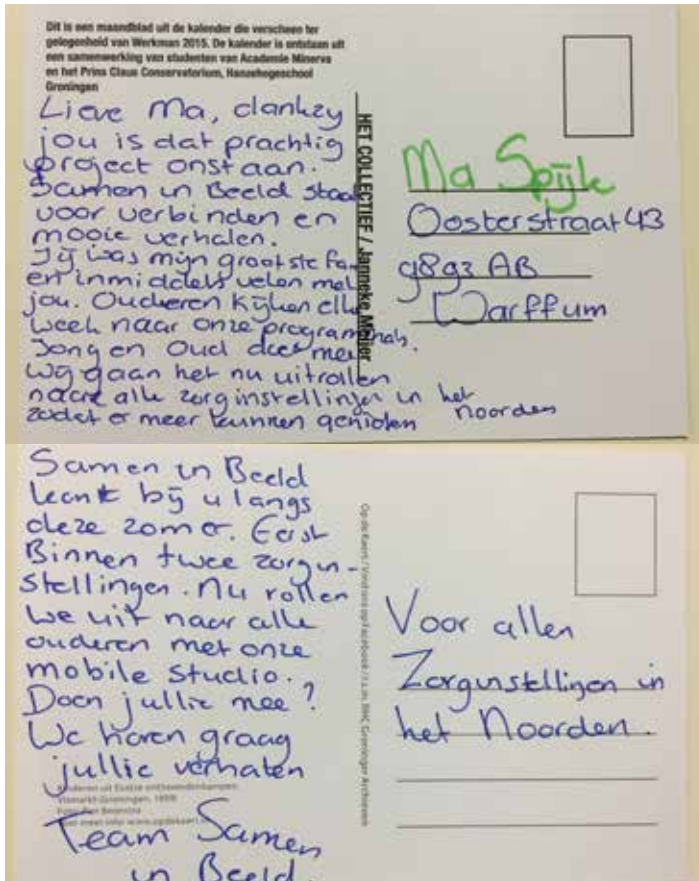 Dit is een maandblad uit de kalender die verscheen ter
gelegenheid van Werkman 2015. De kalender is ontstaan uit
een samenwerking van studenten van Academie Minerva
en het Prins Claus Conservatorium, Hanzehogeschool
Groningen
Lieve Ma, dankzy
jou is dat prachtig
project onstaan.
Samen in Beeld staat
voor verbinden en
mooie verhalen.
Jij was mijn grootste fan
en inmiddels velen met
jou. Ouderen kijken elke
week naar onze programmas.
Jong en oud doet mee
Wij gaan het nu uitrollen
naar alle zorginstellingen in het
zodat er meer kunnen genieten Noorden
HET COLLECTIEF / Janneke Meijer
Ma Spijk
Oosterstraat 43
9893 AB
Warffum
Samen in Beeld
komt bij u langs
deze zomer. Eerst
Binnen twee zorgin-
stellingen. Nu rollen
we uit naar alle
ouderen met onze
mobile studio.
Doen jullie mee?
We horen graag
jullie verhalen
Vismarkt Groningen, 1909
Team Samen
in Beeld.
Op de Kaart / Vind ons op Facebook / i.s.m. RHC Groninger Archieven
Voor allen
Zorginstellingen in
het Noorden.